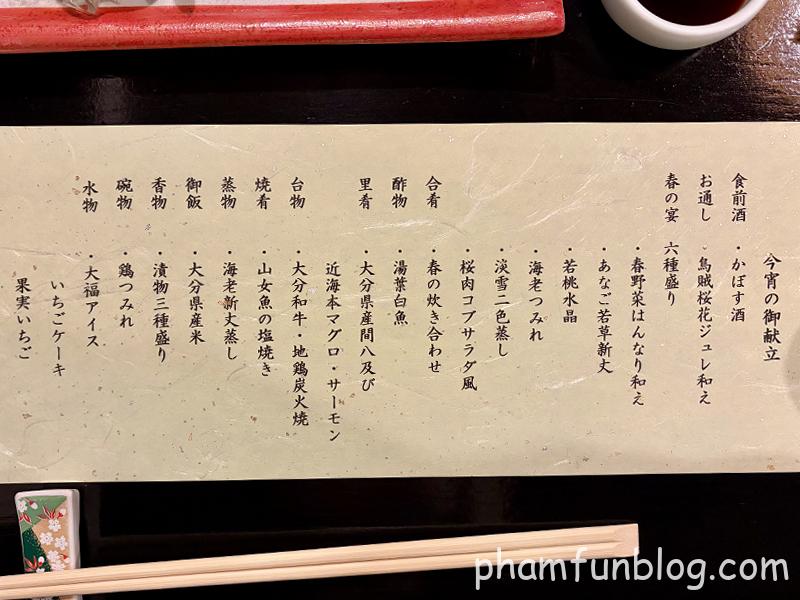 今宵の御献立
食前酒 ・かぼす酒
お通し ・烏賊桜花ジュレ和え
春の宴 六種盛り
・春野菜はんなり和え
・あなご若草新丈
・若桃水晶
・海老つみれ
・淡雪二色蒸し
・桜肉コブサラダ風
合肴 ・春の炊き合わせ
酢物 ・湯葉白魚
里肴 ・大分県産間八及び
近海本マグロ・サーモン
台物 ・大分和牛・地鶏炭火焼
焼肴 ・山女魚の塩焼き
蒸物 ・海老新丈蒸し
御飯 ・大分県産米
香物 ・漬物三種盛り
碗物 ・鶏つみれ
水物 ・大福アイス
いちごケーキ
果実いちご
phamfunblog.com